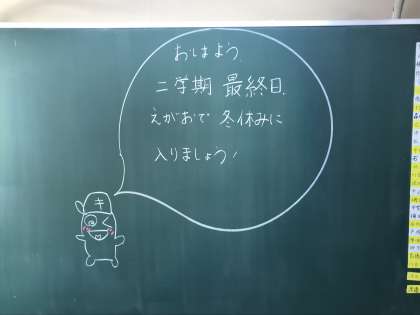 おはよう。
二学期 最終日.
えがおで 冬休みに
入りましょう!
キ